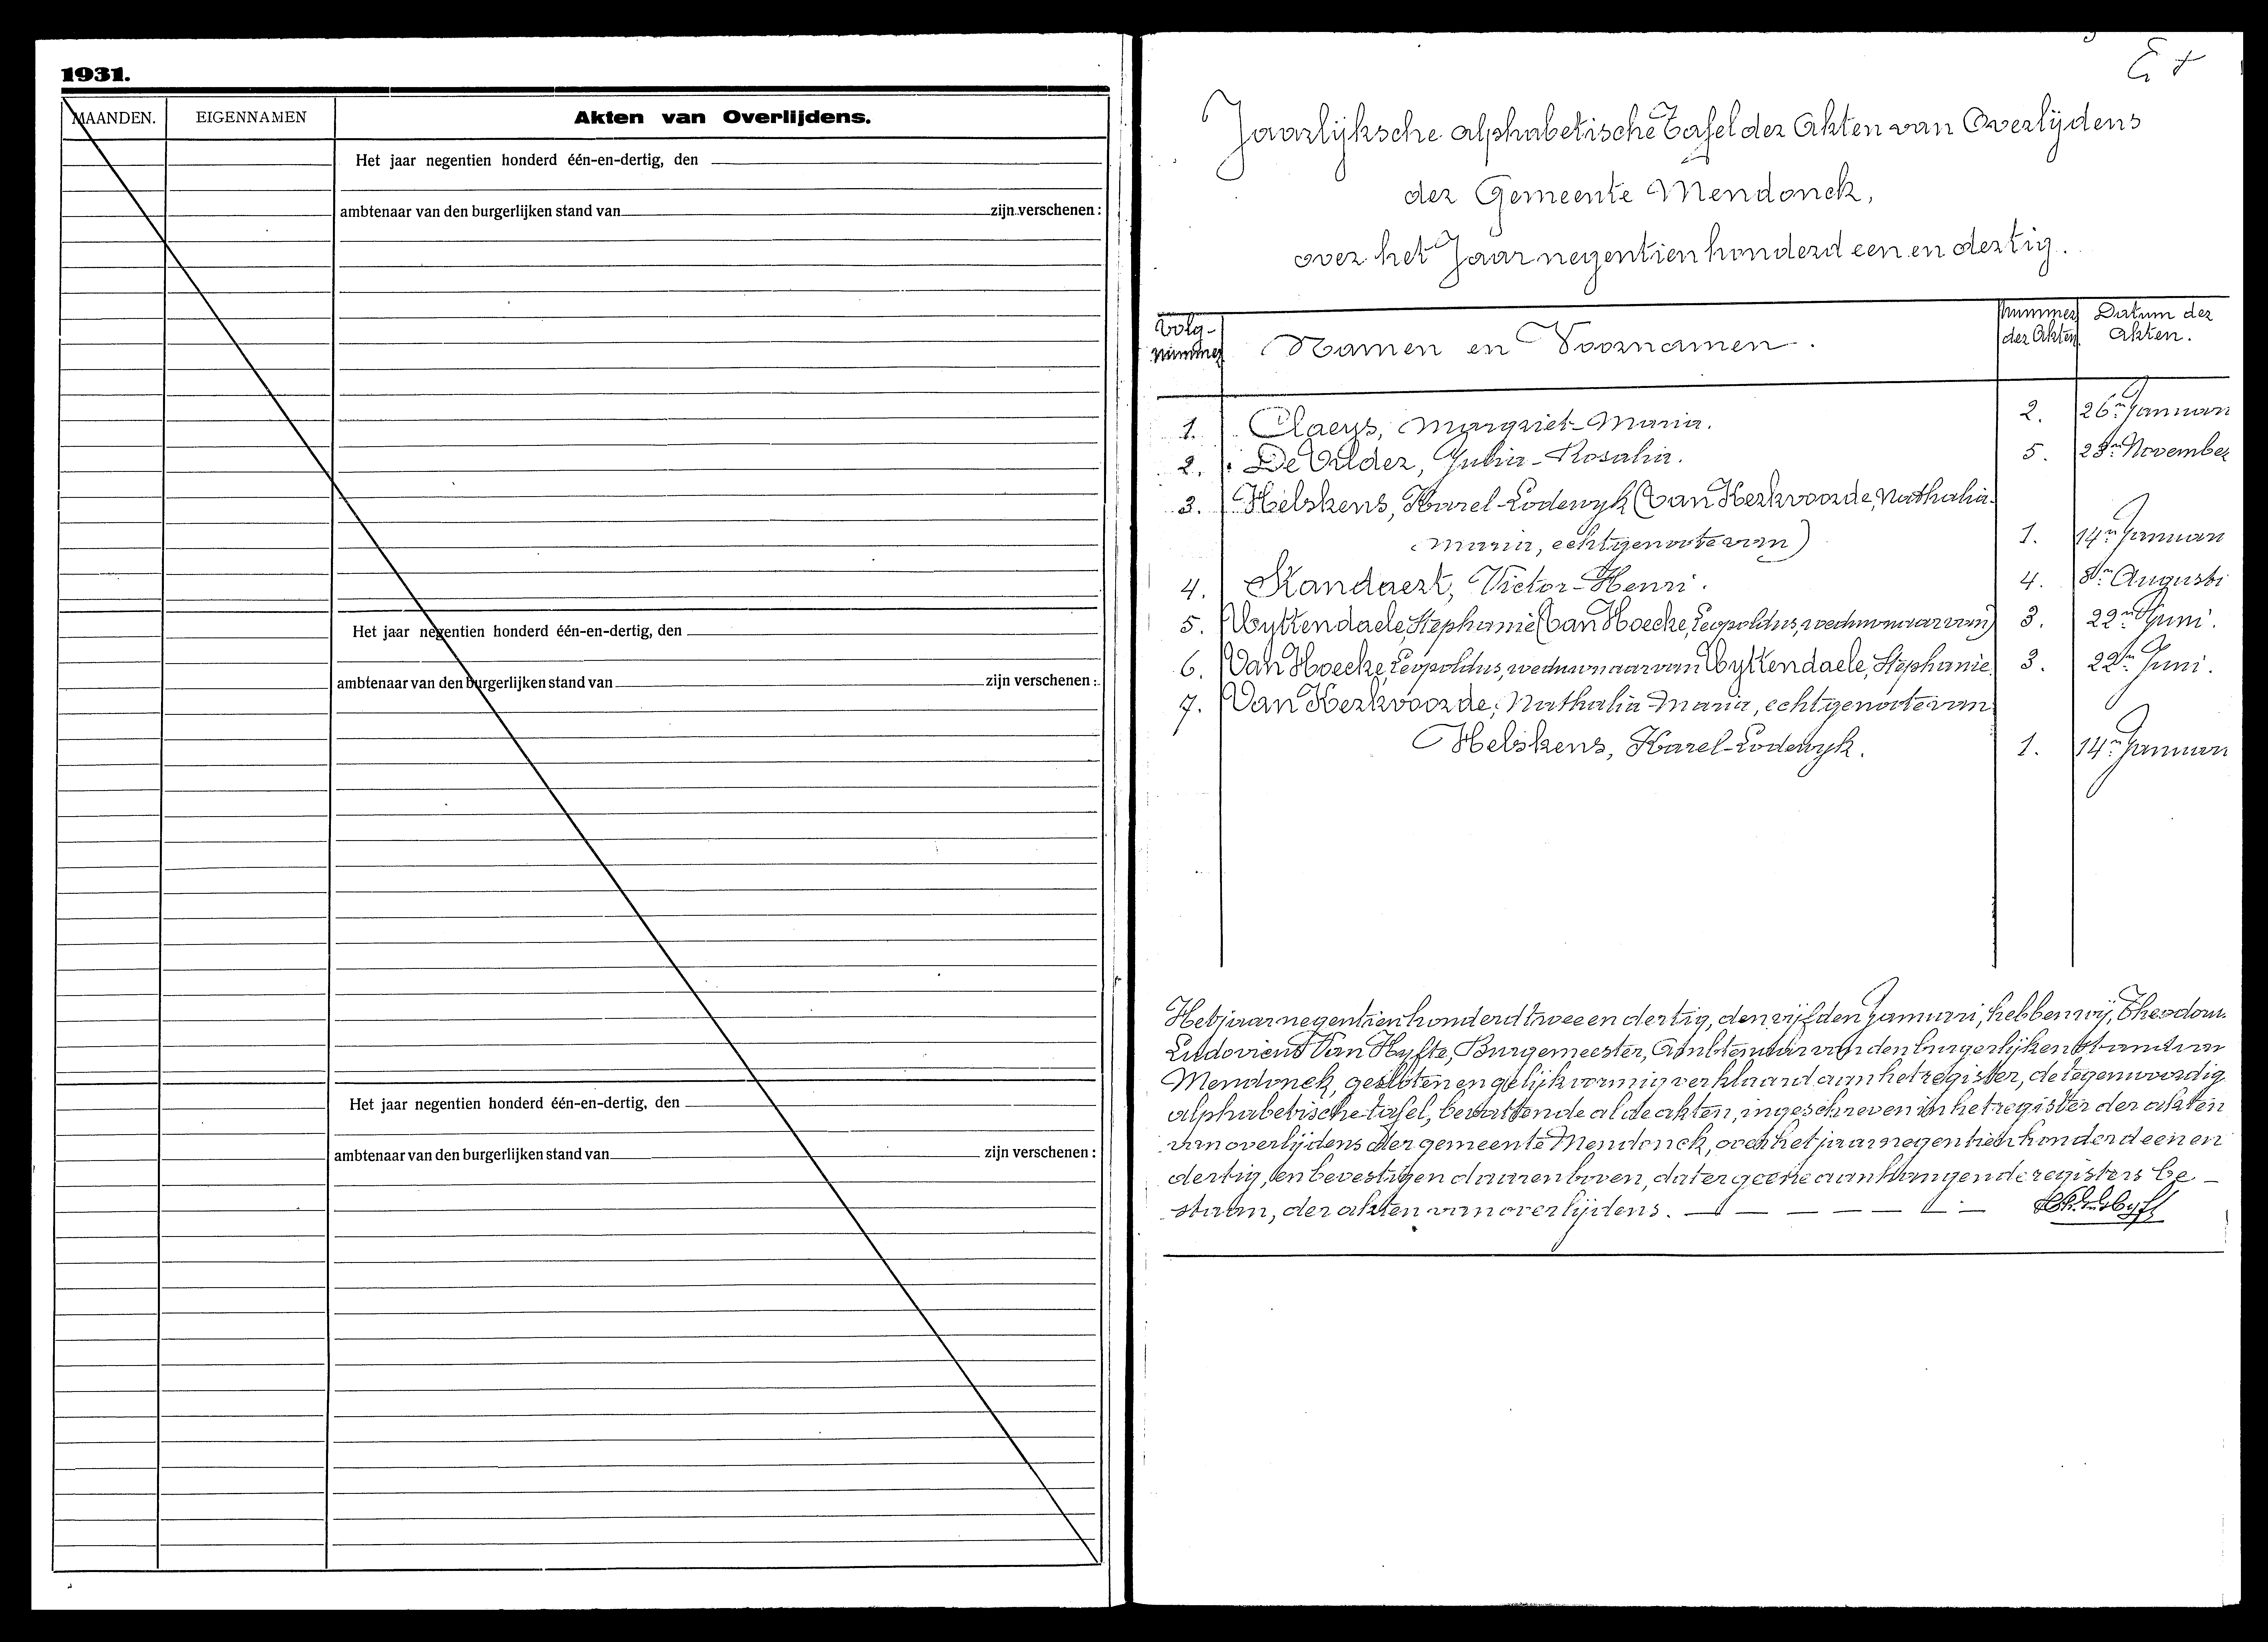 1931.
MAANDEN. EIGENNAMEN Akten van Overlijdens.
Het jaar negentien honderd één-en-dertig, den
ambtenaar van den burgerlijken stand van zijn verschenen :
Het jaar negentien honderd één-en-dertig, den
ambtenaar van den burgerlijken stand van zijn verschenen :
Het jaar negentien honderd één-en-dertig, den
ambtenaar van den burgerlijken stand van zijn verschenen :
Jaarlijksche alphabetische Tafel der Akten van Overlijdens
der Gemeente Mendonck,
over het Jaar negentien honderd een en dertig.
Volg-nummer Namen en Voornamen. Nummer der Akten Datum der Akten.
1. Claeys, Margriet-Maria. 2. 26n Januari
2. De Vilder, Julia-Rosalia. 5. November
3. Helskens, Karel-Lodewyk (Van Kerkvoorde, Nathalia-
Maria, echtgenoote van) 1. 14n Januari
4. Standaert, Victor-Henri. 4. 8n Augusti
5. Uyttendaele, Stephanie (Van Hoecke, Leopoldus, weduwnaar van) 3. 22n Juni.
6. Van Hoecke, Leopoldus, weduwnaar van Uyttendaele, Stephanie 3. 22n Juni.
7. Van Kerkvoorde, Nathalia-Maria, echtgenoote van
Helskens, Karel-Lodewyk. 1. 14n Januari
Het jaar negentien honderd twee en dertig, den vijfden Januari, hebben wij, Theodoor
Ludovicus Van Hyfte, Burgemeester, Ambtenaar van den burgerlijken stand van
Mendonck, gesloten en gelijkvormig verklaard aan het register, de tegenwoordig
alphabetische tafel, bevattende al de akten, ingeschreven in het register der akten
van overlijdens der gemeente Mendonck, over het jaar negentien honderd een en
dertig, en bevestigen daarenboven, dat er geene aanhangende registers be-
staan, der akten van overlijdens.